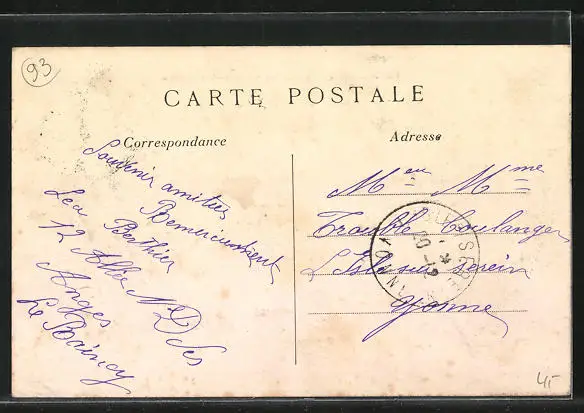 93
CARTE POSTALE
Correspondance
Adresse
Souvenir amitiés
Remerciement
Léa Berthier
12 Allée N D des
Anges
Le Raincy
Meur Mme
Trouble Boulanger
L'Isle sur Serein
Yonne
4,-